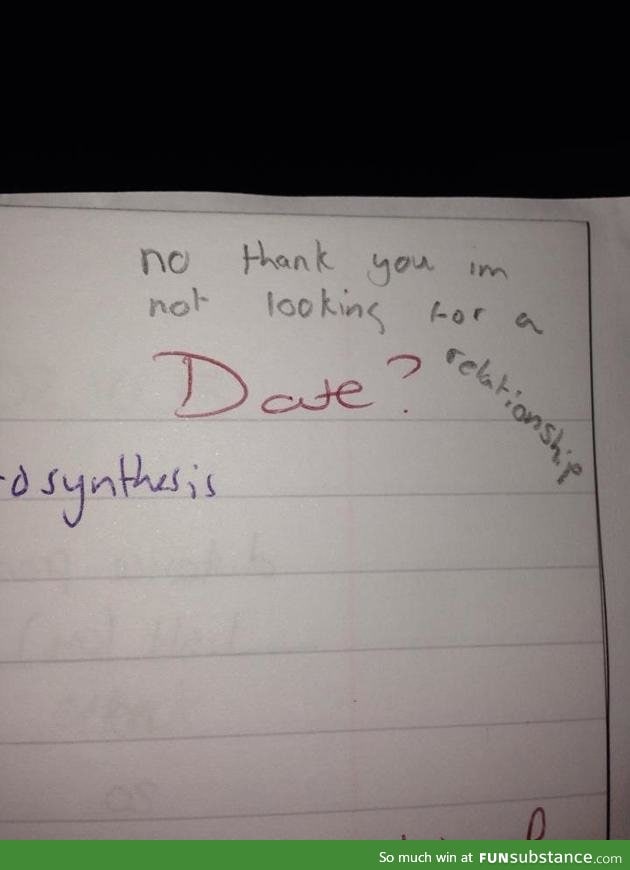 no thank you im
not looking for a
relationship
Date?
osynthesis
So much win at FUNsubstance.com